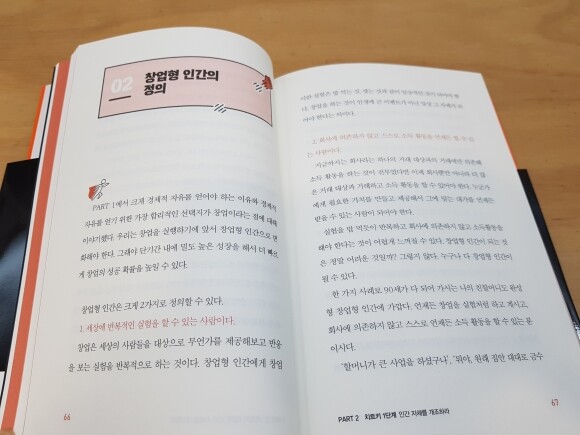 02
창업형 인간의
정의
PART 1에서 크게 경제적 자유를 얻어야 하는 이유와 경제적
자유를 얻기 위한 가장 합리적인 선택지가 창업이라는 점에 대해
이야기했다. 우리는 창업을 실행하기에 앞서 창업형 인간으로 변
화해야 한다. 그래야 단기간 내에 밀도 높은 성장을 해서 더 빠르
게 창업의 성공 확률을 높일 수 있다.
창업형 인간은 크게 2가지로 정의할 수 있다.
1. 세상에 반복적인 실험을 할 수 있는 사람이다.
창업은 세상의 사람들을 대상으로 무언가를 제공해보고 반응
을 보는 실험을 반복적으로 하는 것이다. 창업형 인간에게 창업
66
이란 실험은 밥 먹는 것, 씻는 것과 같이 일상적인
다. 창업을 하는 것이 인생에 큰 이벤트가 아닌 일상 그 자체가 되
어야 한다는 의미다.
2. 회사에 의존하지 않고 스스로 소득 활동을 언제든 할 수 있
는 사람이다.
지금까지는 회사라는 하나의 거래 대상과의 거래에만 의존해
소득 활동을 하는 것이 전부였다면 이제 회사뿐만 아니라 더 많
은 거래 대상과 거래하고 소득 활동을 할 수 있어야 한다. 누군가
에게 필요한 가치를 만들고, 제공해서 그에 맞는 대가를 언제든
받을 수 있는 사람이 되어야 한다.
실험을 밥 먹듯이 반복하고 회사에 의존하지 않고 소득활동을
해야 한다는 것이 어렵게 느껴질 수 있다. 창업형 인간이 되는 것
은 정말 어려운 것일까? 그렇지 않다. 누구나 다 창업형 인간이
될 수 있다.
한 가지 사례로 90세가 다 되어 가시는 나의 친할머니도 완성
형 창업형 인간에 가깝다. 언제든 창업을 실험처럼 하고 계시고,
회사에 의존하지 않고 스스로 언제든 소득 활동을 할 수 있는 분
이시다.
'할머니가 큰 사업을 하셨구나', '뭐야, 원래 집안 대대로 금수
PART 2 치트키 1단계 인간 자체를 개조하라
67